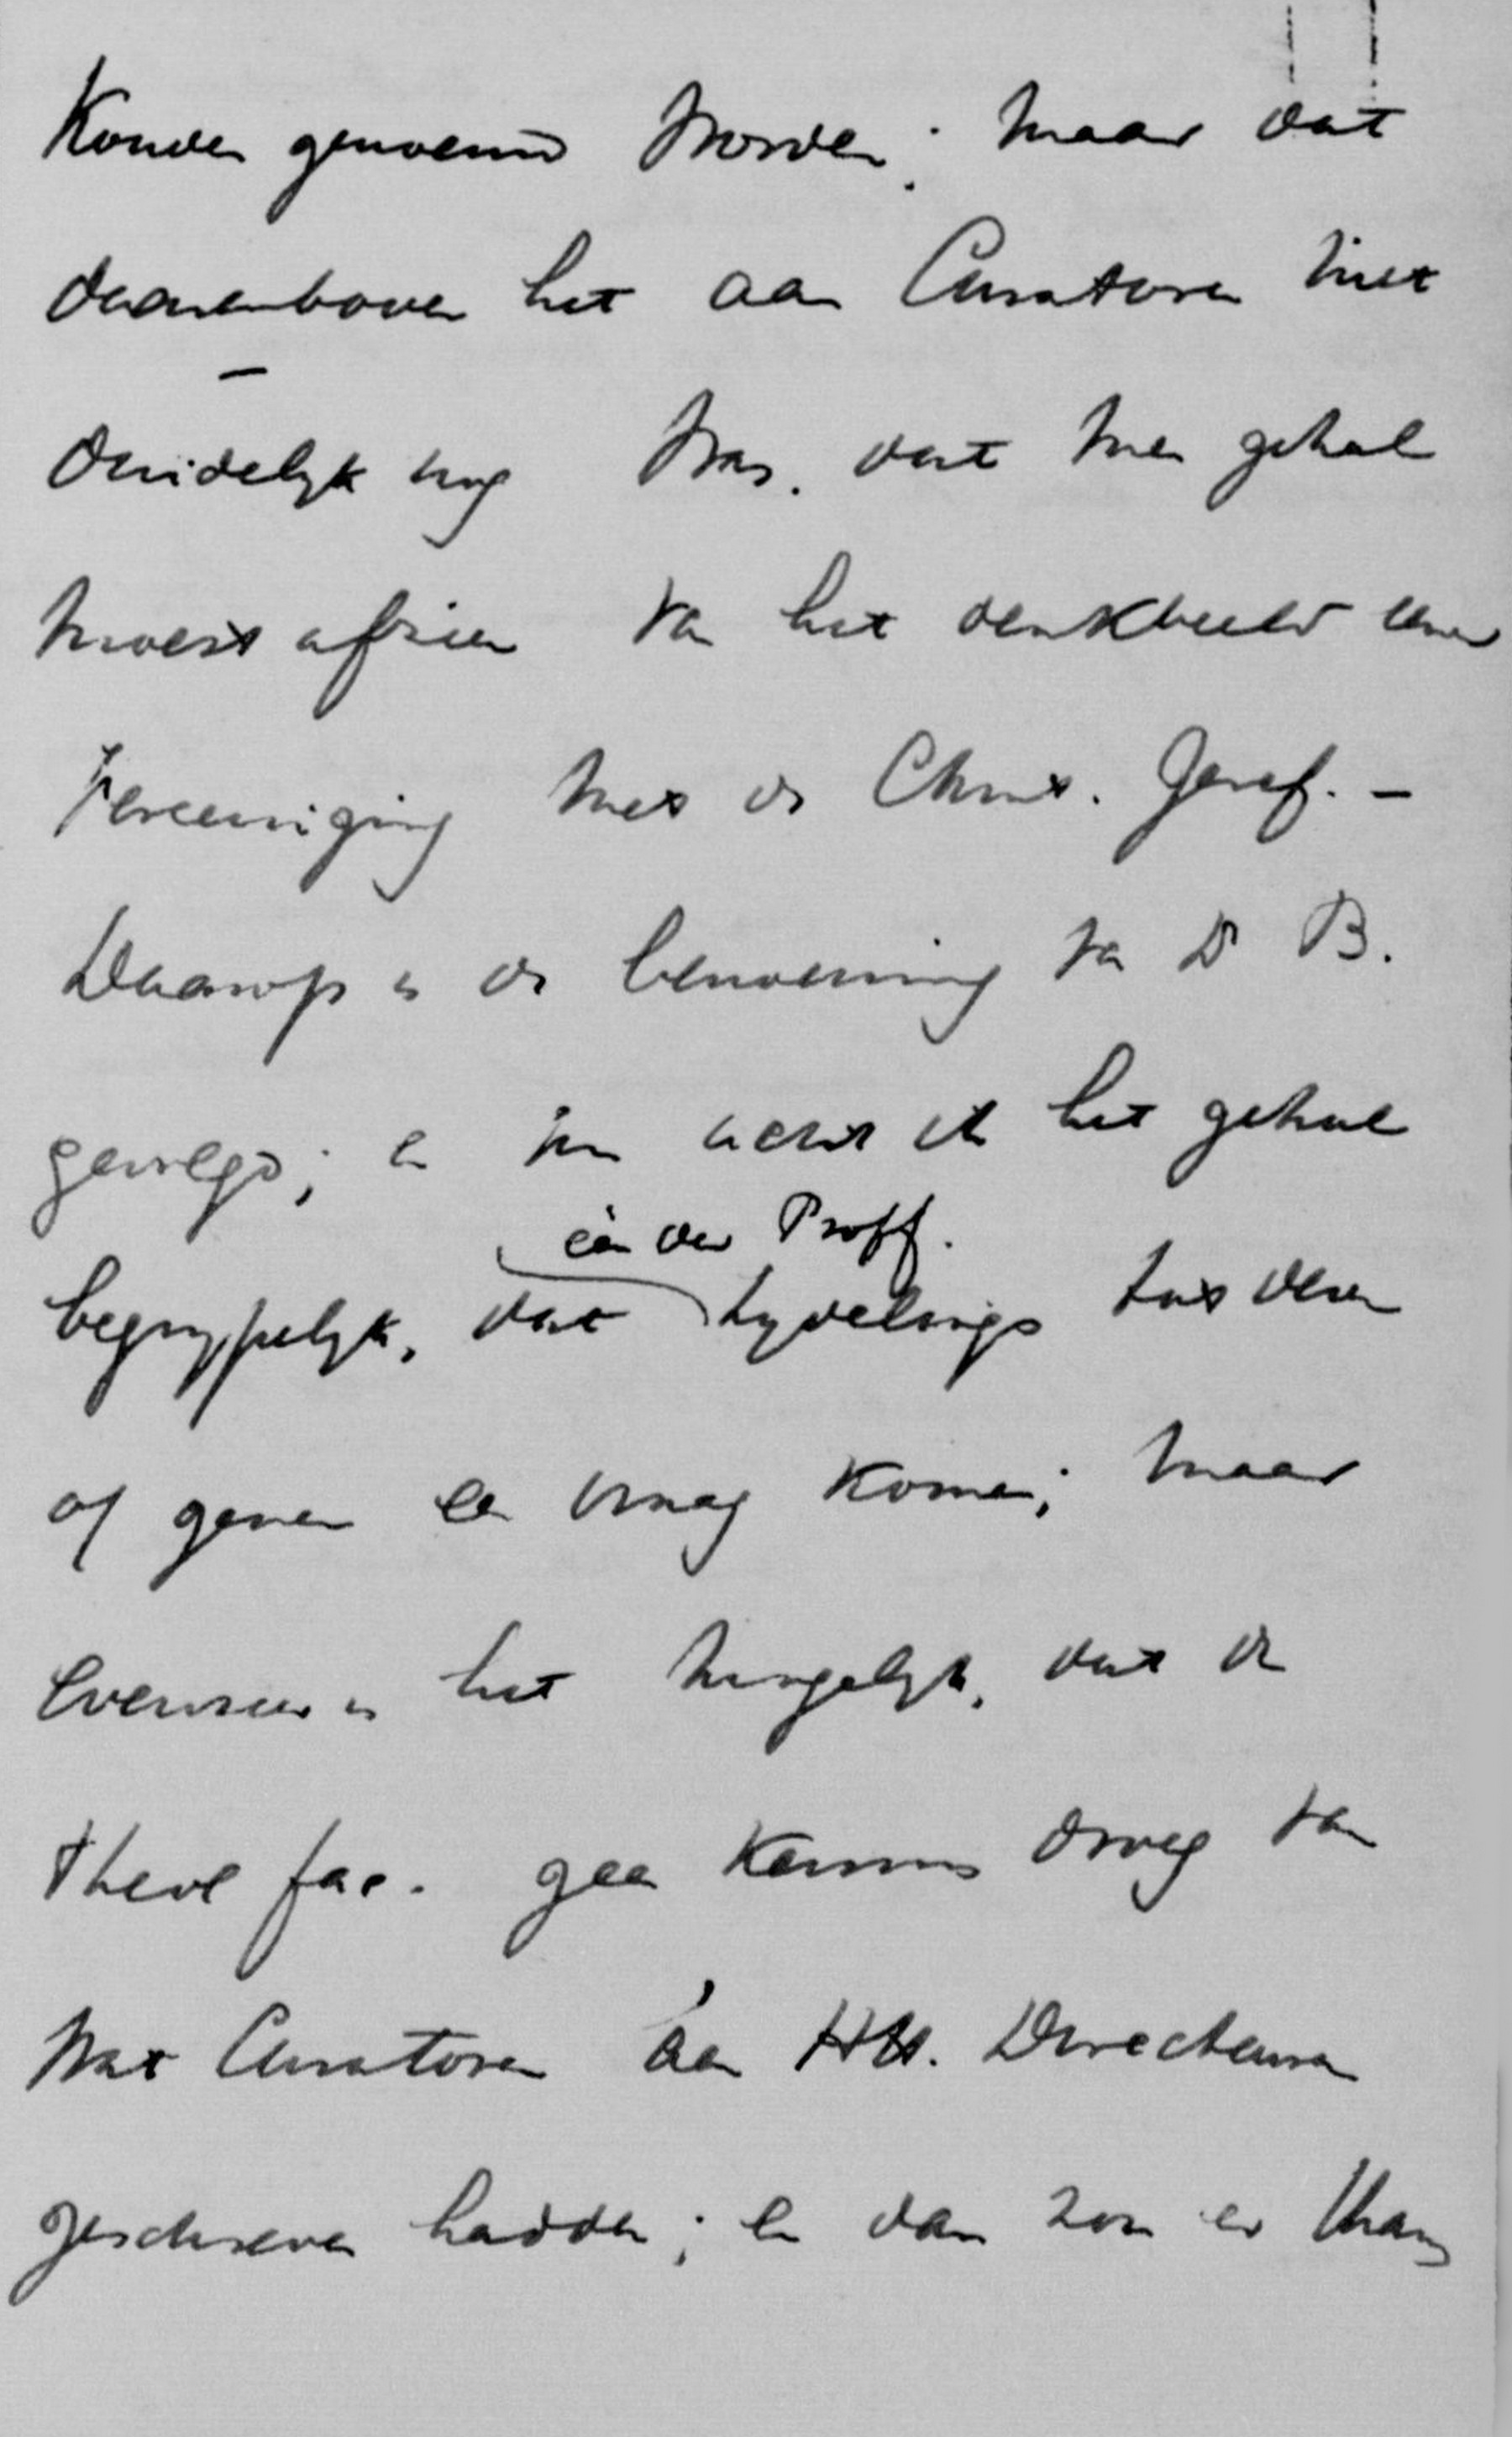 konden genoemd worden; maar dat
daarenboven het aan Curatoren niet
duidelyk nog was, dat men geheel
moest afzien van het denkbeeld eener
Vereeniging met de Chris. Geref. –
Daarop is de benoeming van Dr B.
gevolgd; en nu acht ik het geheel
één der Proff.
begrypelyk, dat tydelings tot dezen
of genen een vraag komen; maar
evenzeer is het mogelyk, dat de
Theol fac. geen kennis droeg van
wat Curatoren aan HH. Directeuren
geschreven hadden; en dan zou er thans